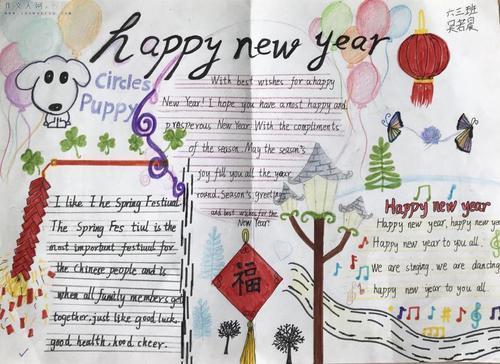 happy new year
六三班
Circles
Puppy
With best wishes for a happy
New Year! I hope you have a most happy and
prosperous New Year. With the compliments
of the season. May the season's
joy fill you all the year
round. Season's greeting
and best wishes for the
New Year.
I like The Spring Festival
The Spring Fes tiul is the
most important festiual for
the Chinese people and is
when all family members get
together, just like good luck,
good health, hood cheer.
福
Happy new year
Happy new year, happy new year
Happy new year to you all
We are singing. we are dancing
happy new year to you all.